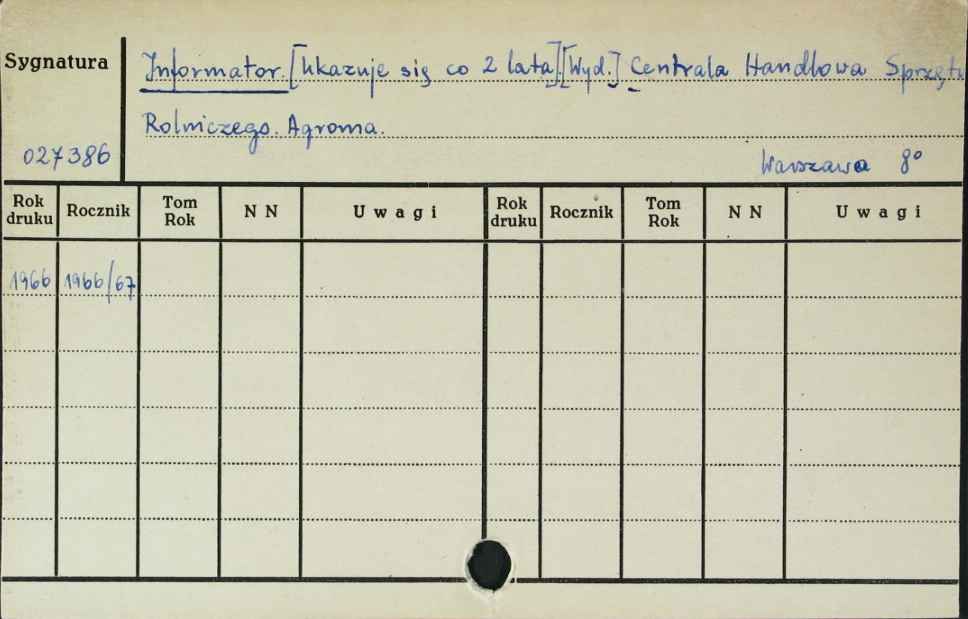 Sygnatura
Informator. [Ukazuje się co 2 lata]. [Wyd.] Centrala Handlowa Sprzętu
Rolniczego. Agroma.
027386
Warszawa 8°
Rok druku Rocznik Tom Rok N N Uwagi Rok druku Rocznik Tom Rok N N Uwagi
1966 1966/67